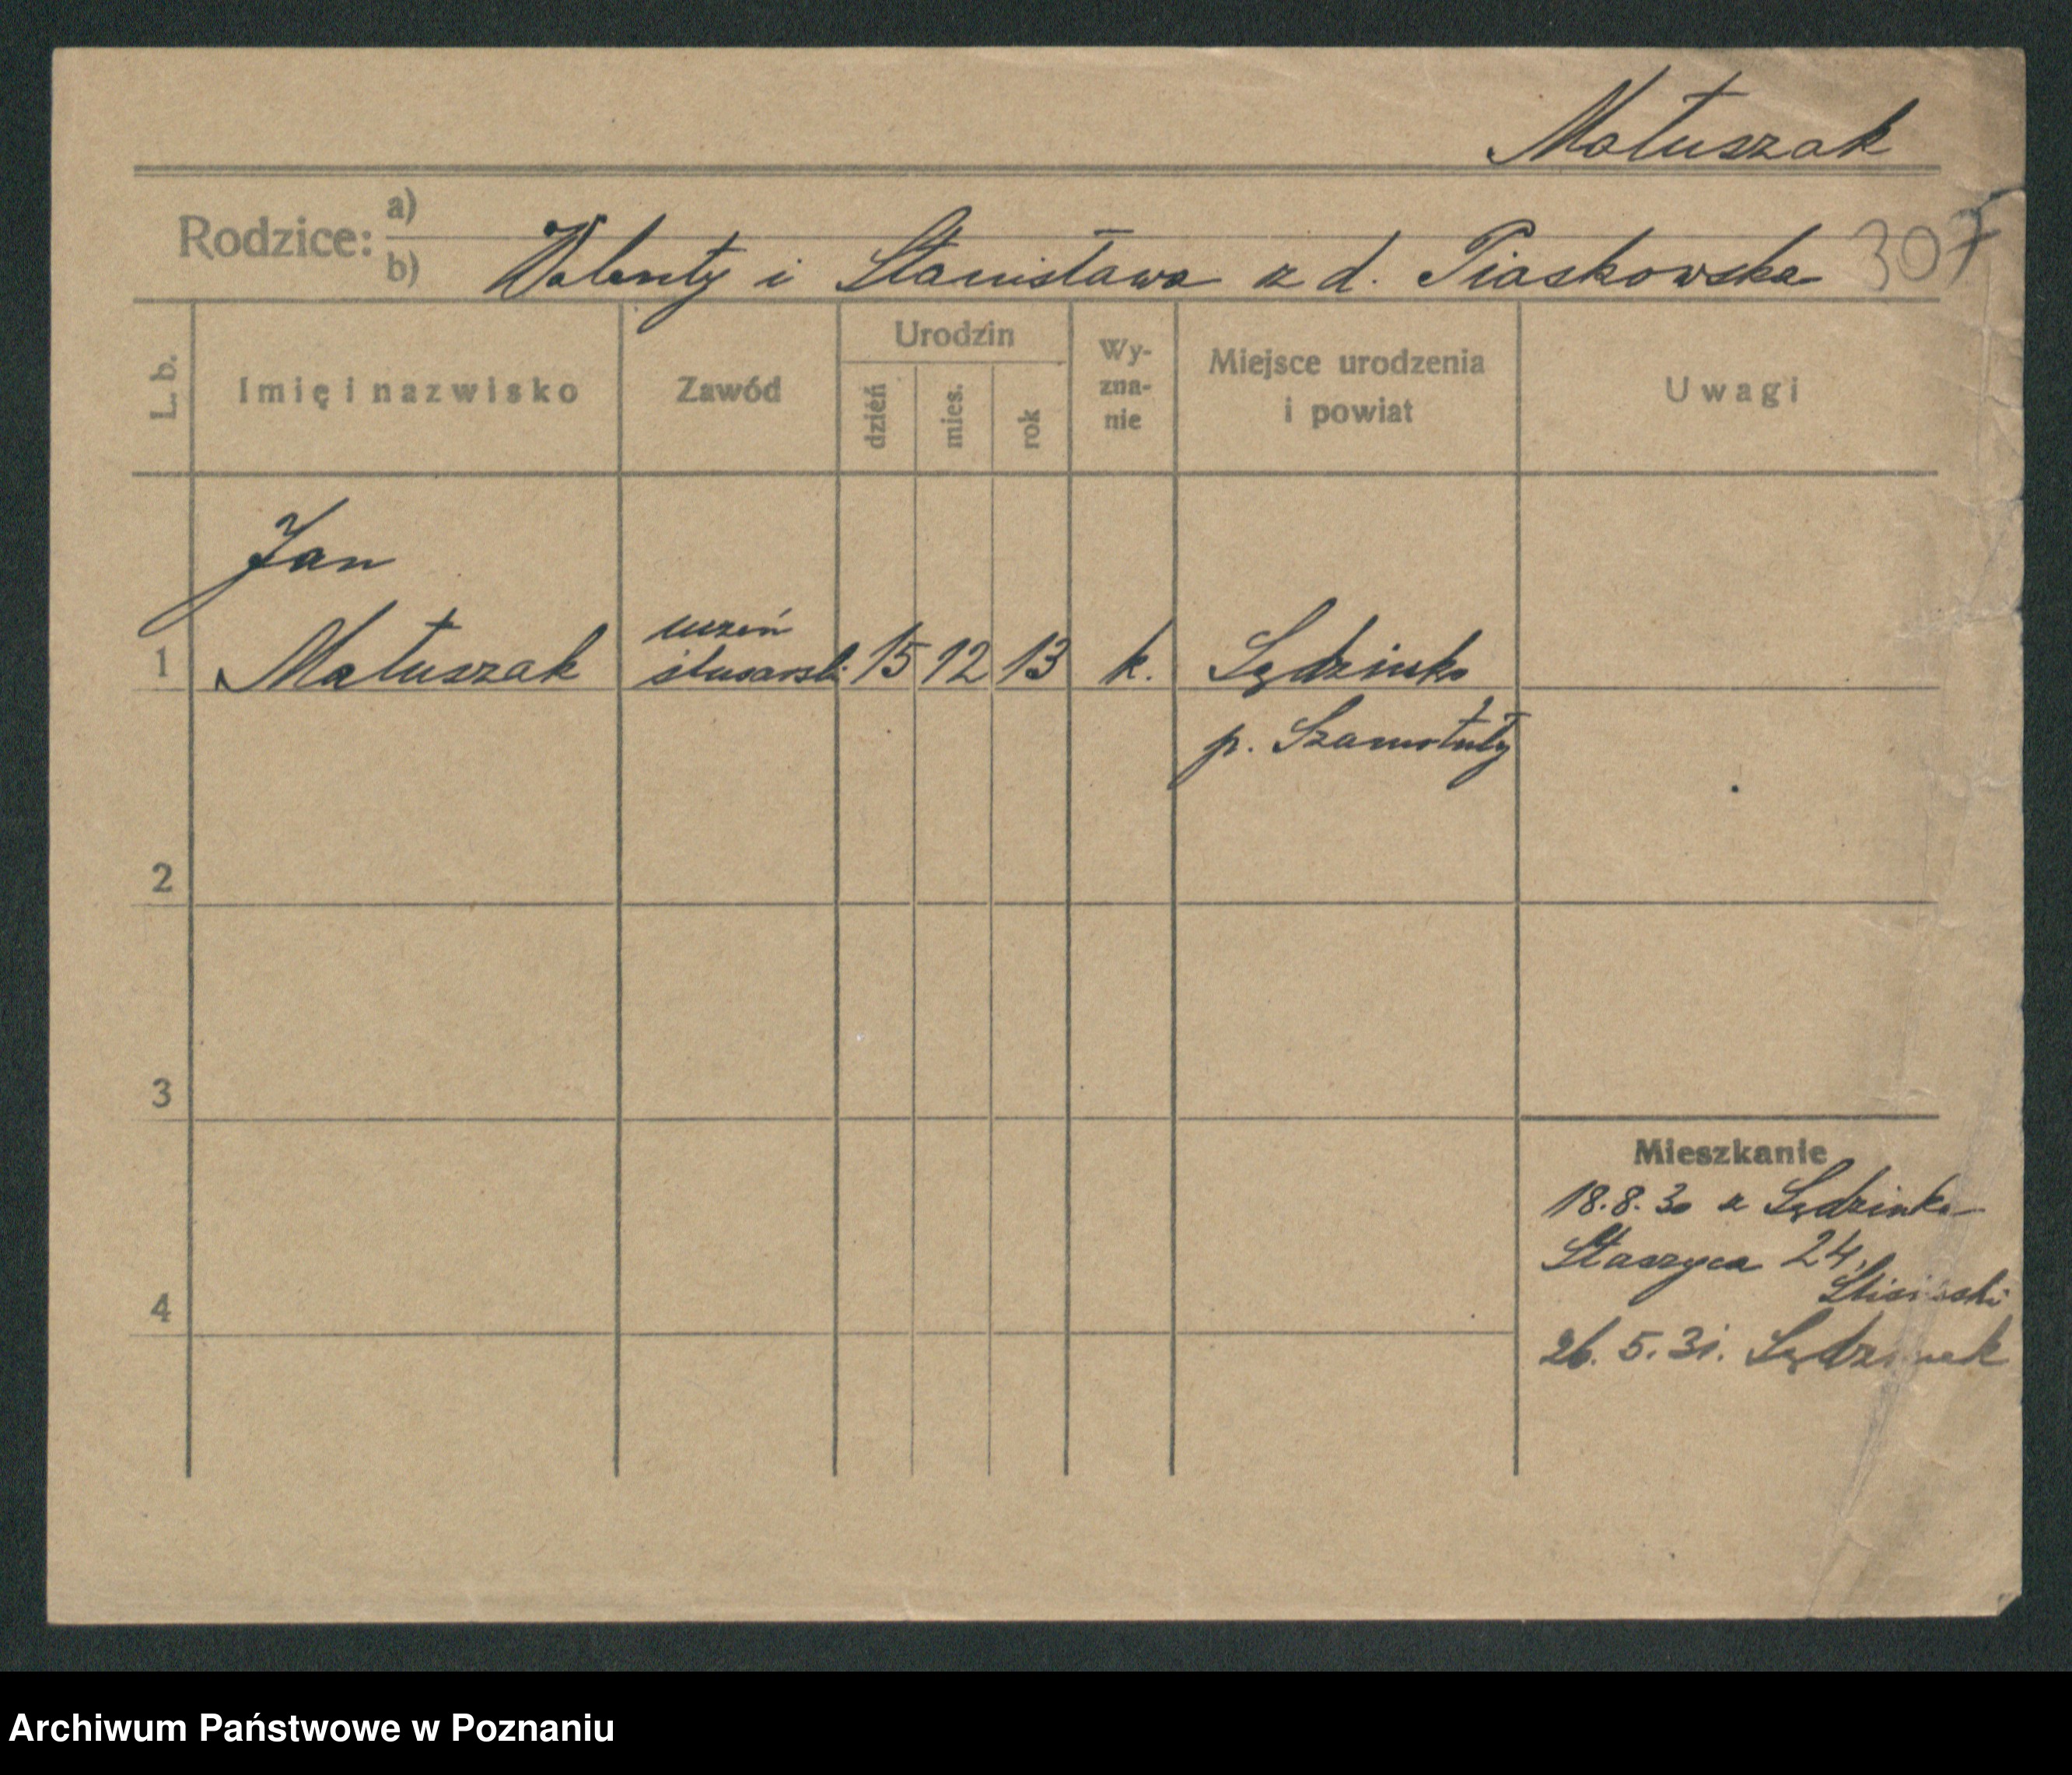 Matuszak
Rodzice: a)
b) Walenty i Stanisława z d. Piaskowska 307
L. b. Imię i nazwisko Zawód Urodzin dzień mies. rok Wy-zna-nie Miejsce urodzenia i powiat Uwagi
Jan
uczeń
1 Matuszak ślusarski 15 12 13 k. Sędzinko
p. Szamotuły
2
3
Mieszkanie
18.8.30 z Sędzinka
Staszyca 24,
4
26. 5. 31. Sędzinek
Archiwum Państwowe w Poznaniu